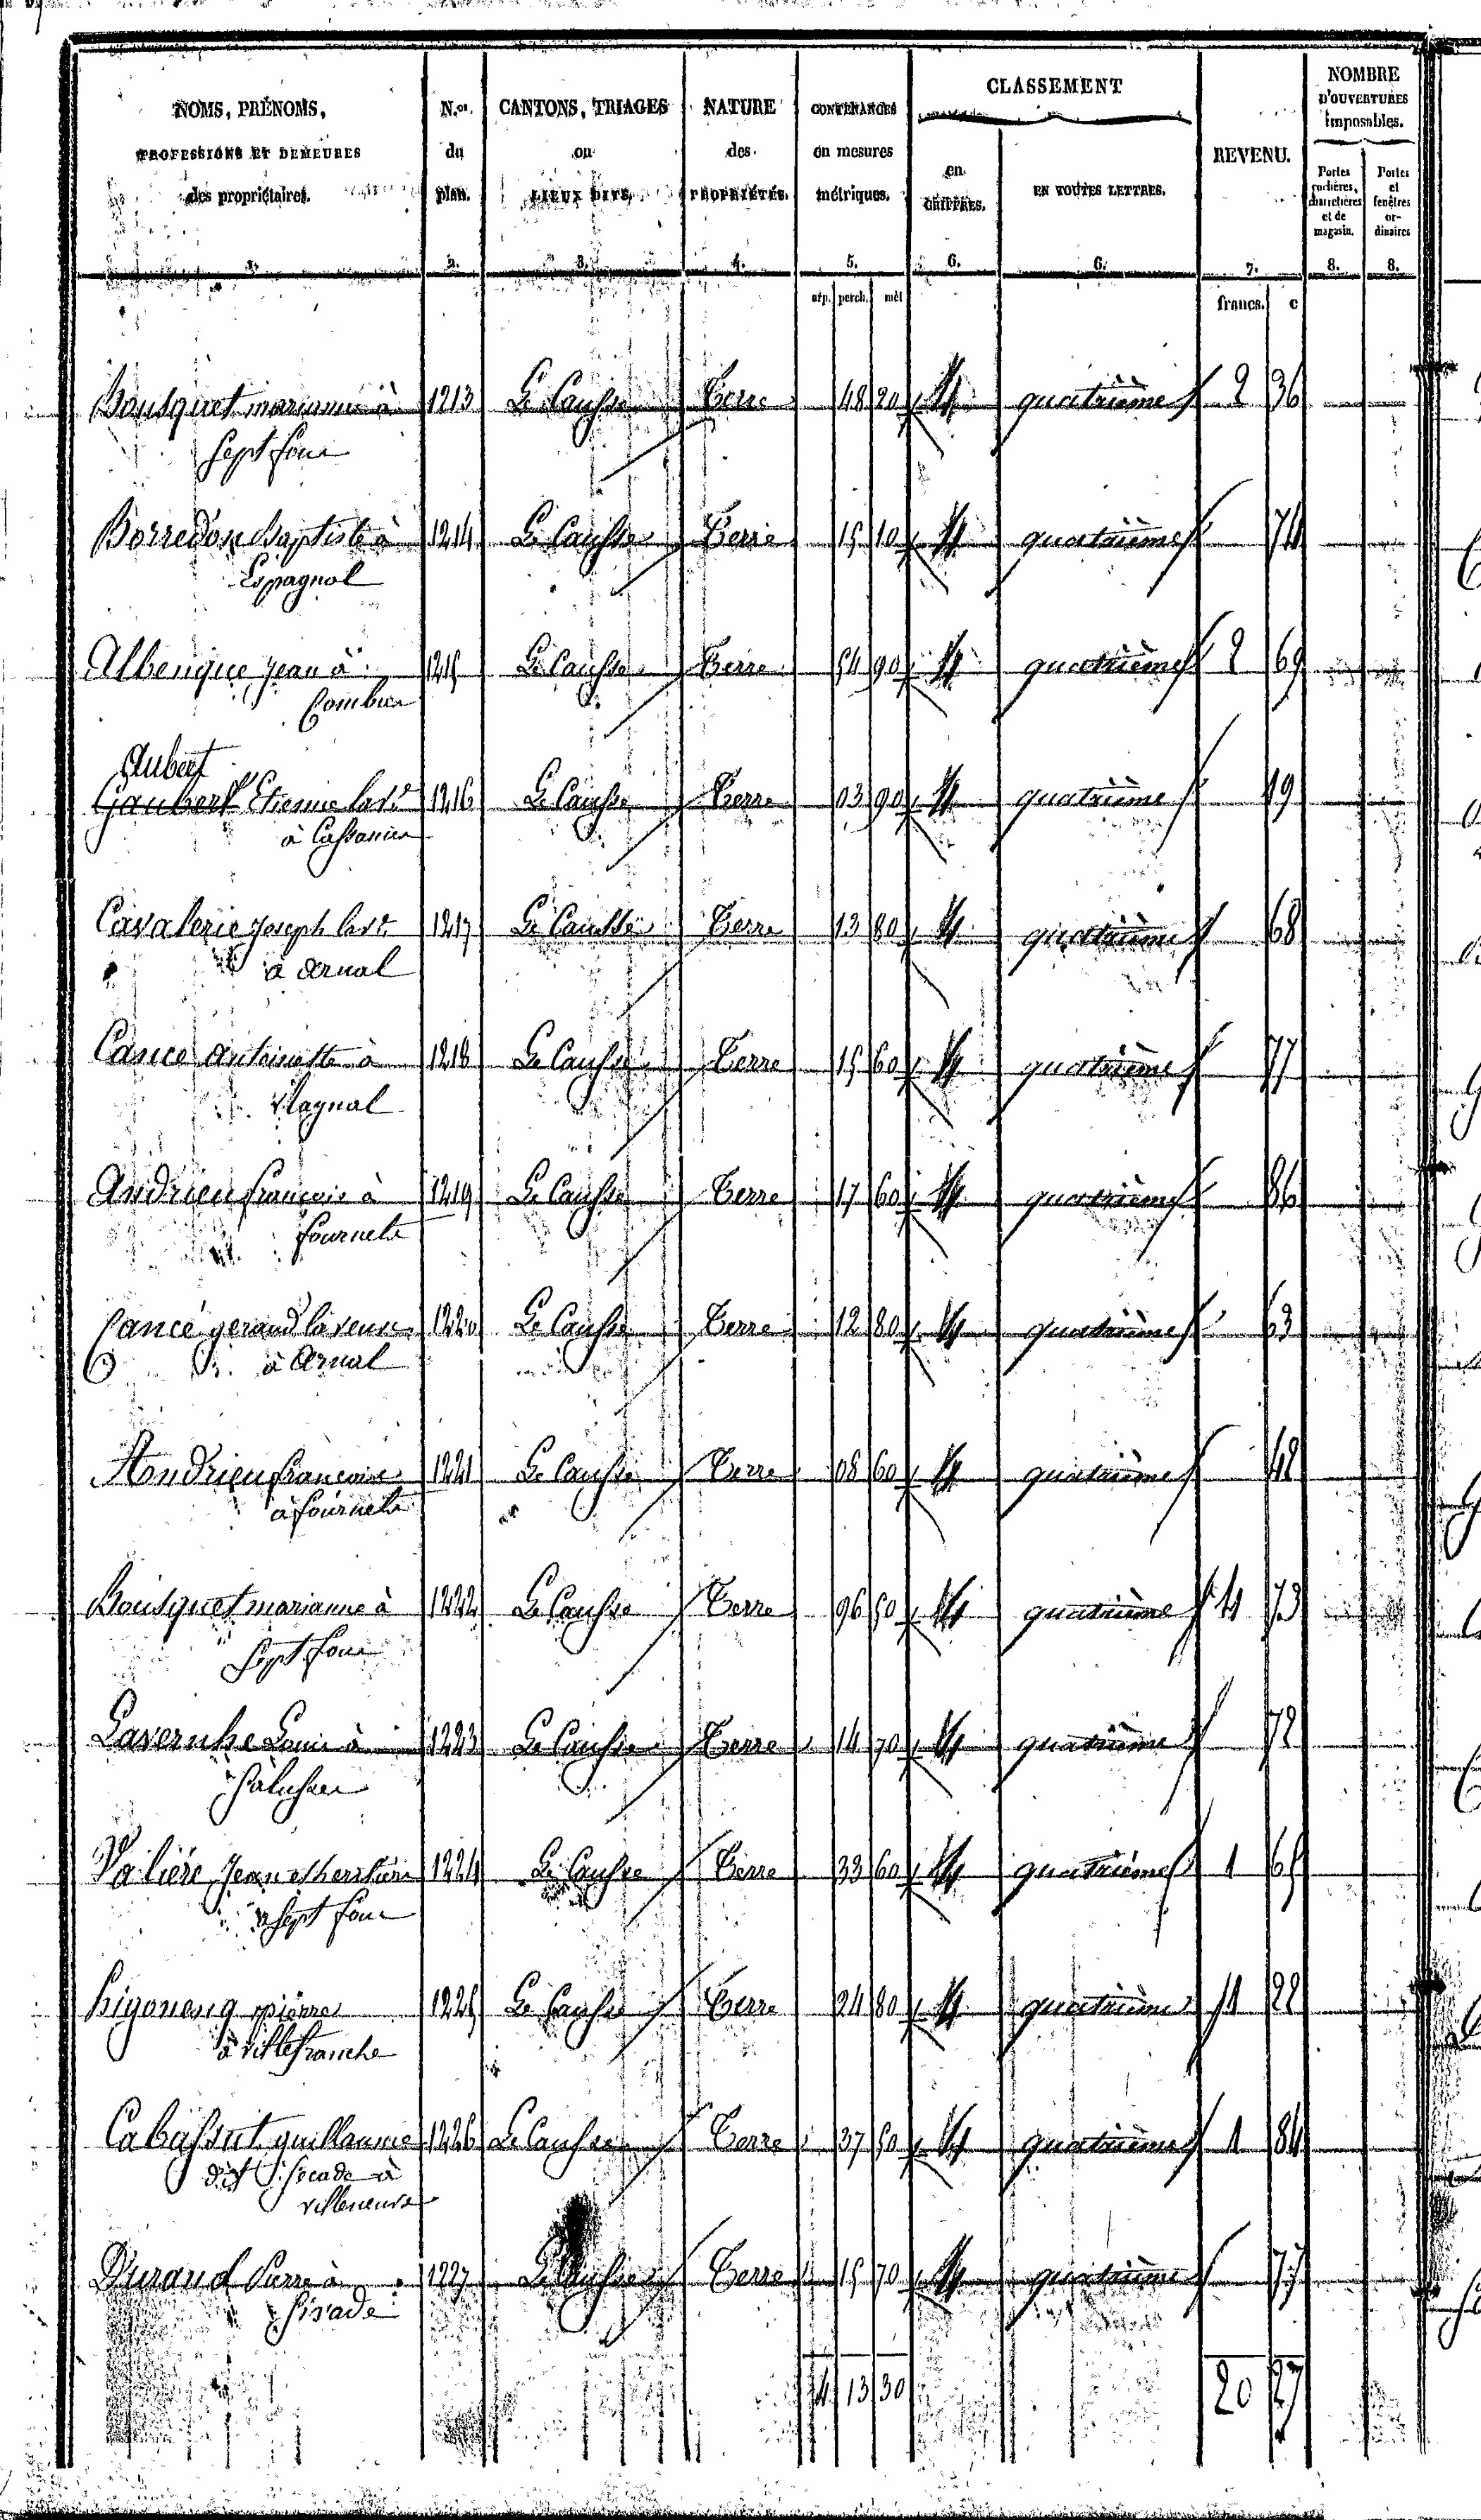 NOMS, PRÉNOMS, PROFESSIONS ET DEMEURES des propriétaires. 1. N.os du plan. 2. CANTONS, TRIAGES ou LIEUX DITS. 3. NATURE des PROPRIÉTÉS. 4. CONTENANCES en mesures métriques. 5. CLASSEMENT en CHIFFRES. 6. EN TOUTES LETTRES. 6. REVENU. 7. NOMBRE D'OUVERTURES imposables. Portes cochères, charretières et de magasin. 8. Portes et fenêtres ordinaires 8.
arp. perch. mèt francs. c
Bousquet marianne à 1213 Le Causse Terre 48 20 4 quatrième 2 36
Sept fons
Borredon Baptiste à 1214 Le Causse Terre 15 10 4 quatrième 74
Espagnol
Albenque Jean à 1215 Le Causse Terre 54 90 4 quatrième 2 69
Combes
Aubert
Gaubert Etienne 1216 Le Causse Terre 03 90 4 quatrième 19
à
Cavalerie Joseph 1217 Le Causse Terre 13 80 4 quatrième 68
à arnal
Cance antoinette à 1218 Le Causse Terre 15 60 4 quatrième 77
Andrieu françois à 1219 Le Causse Terre 17 60 4 quatrième 86
fournels
Cance geraud la veuve 1220 Le Causse Terre 12 80 4 quatrième 63
à Arnal
Andrieu françois 1221 Le Causse Terre 08 60 4 quatrième 42
à fournels
Bousquet marianne à 1222 Le Causse Terre 96 50 4 quatrième 4 73
Sept fons
Lavernhe Louis à 1223 Le Causse Terre 14 70 4 quatrième 72
Valière Jean 1224 Le Causse Terre 33 60 4 quatrième 1 65
a sept fons
pierre 1225 Le Causse Terre 24 80 4 quatrième 1 22
à villefranche
Cabassut guillaume 1226 Le Causse Terre 37 50 4 quatrième 1 84
dit à
villeneuve
Durand Pierre à 1227 Le Causse Terre 15 70 4 quatrième 77
4 13 30 20 27